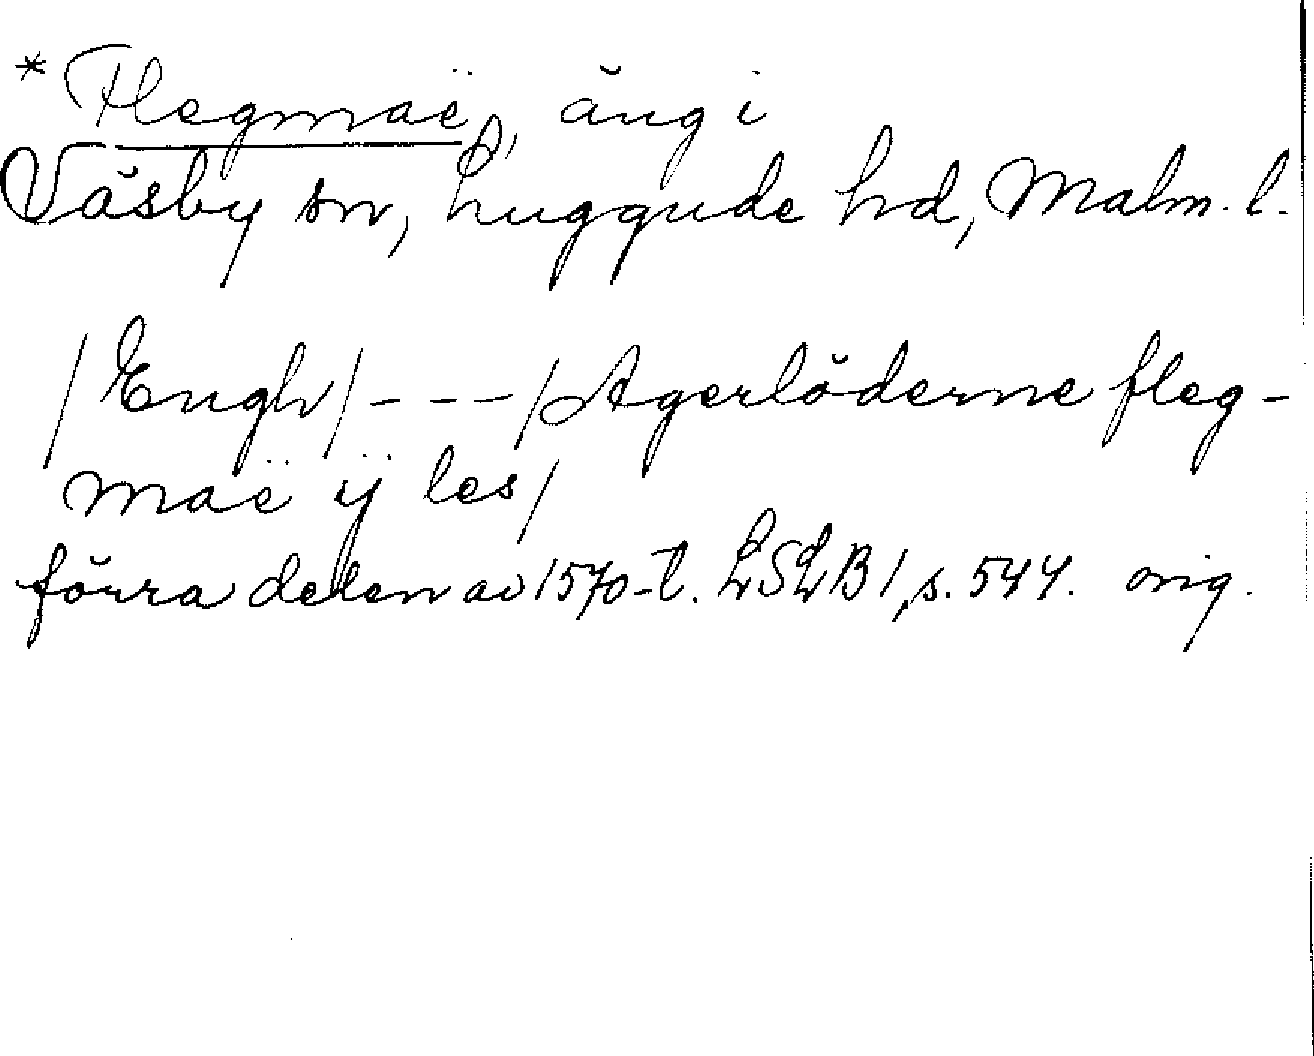 * Flegmaë, äng i
Väsby sn, Luggude hd, Malm. l.
/Engh/ - - - /Agerlöderne fleg-
maë ÿ les/
förra delen av 1570-t. LSLB 1, s. 544. orig.